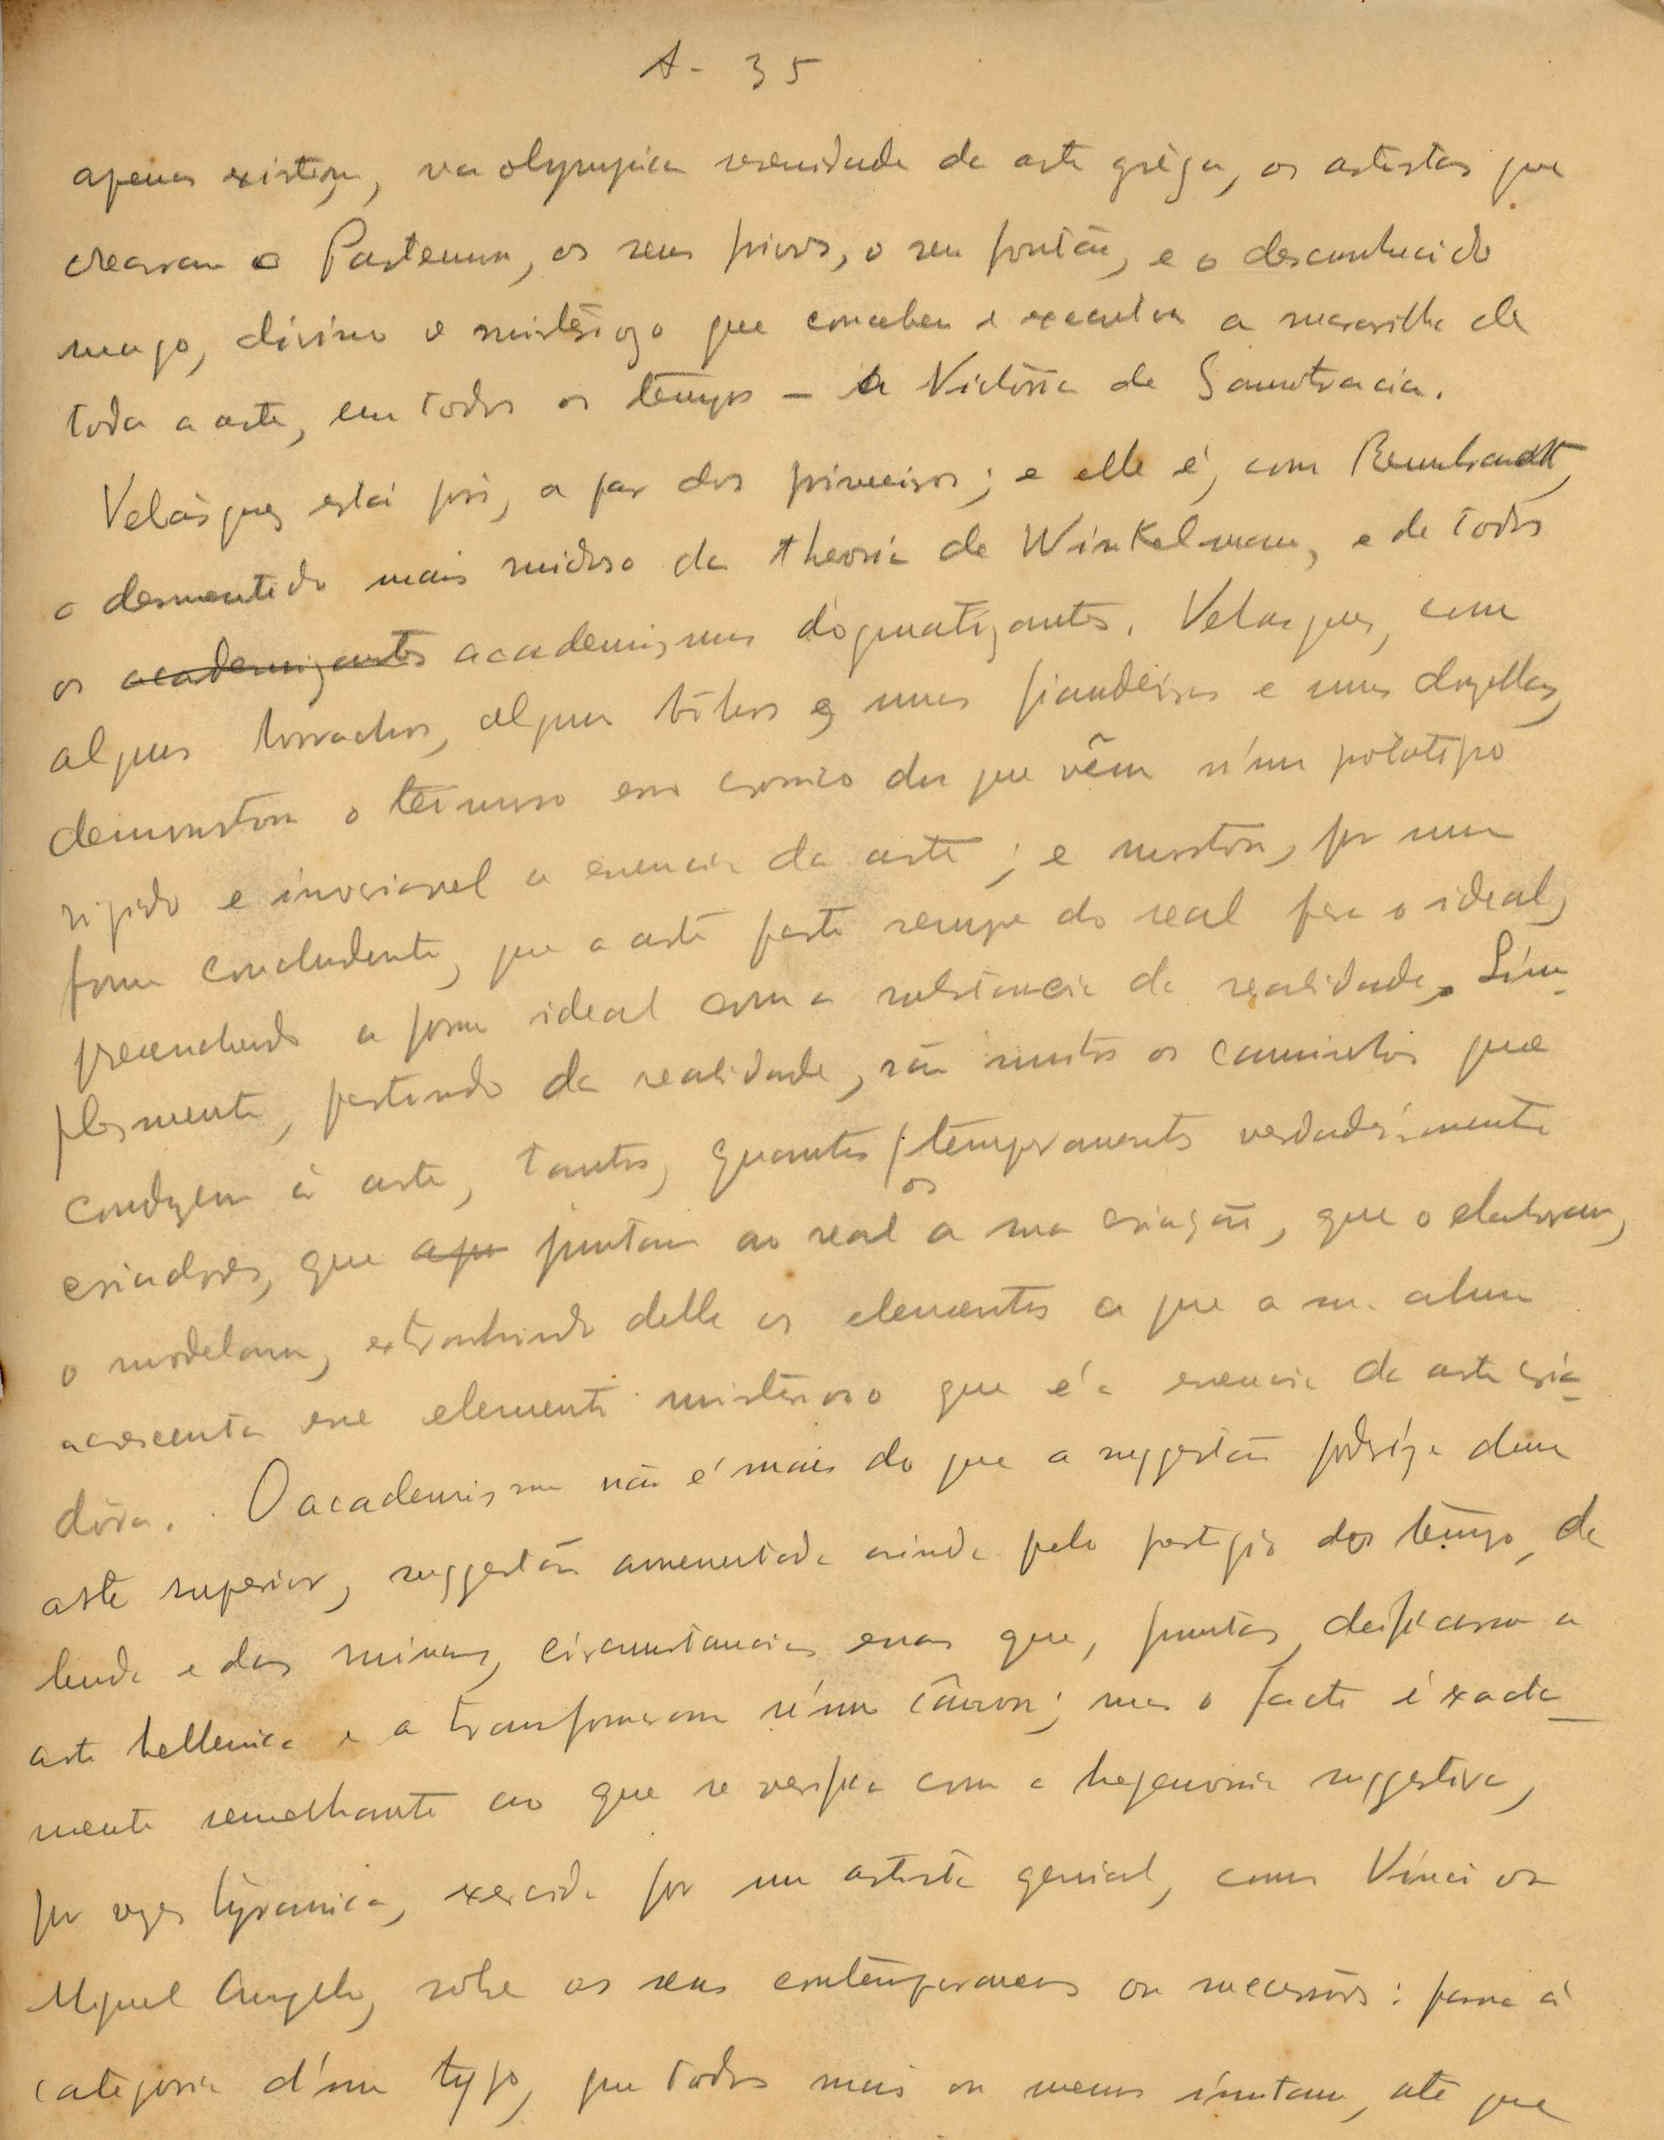 A - 35
apenas existem, na olympica serenidade da arte grèga, os artistas que
crearam o Partenon, os seus frisos, o seu frontão, e o desconhecido
mago, divino e mistèriozo que concebeu e executou a maravilha de
toda a arte, em todos os tempos - a Victória de Samotracia.
Velàsques está pois, a par dos primeiros; e elle é, com Rembrandt,
o desmentido mais ruidoso da theoria de Winkelmann, e de todos
os academizantes academismos dogmatizantes. Velasques, com
alguns borrachos, alguns bobos e umas fiandeiras e umas donzellas,
demonstra o teimoso erro cronico dos que vêem n'um prototipo
rigido e invariavel a essencia da arte; e mostra, por uma
forma concludente, que a arte parte sempre do real para o ideal,
preenchendo a forma ideal com a substancia da realidade. Sim-
plesmente, partindo da realidade, são muitos os caminhos que
conduzem á arte, tantos, quantos os temperamentos verdadeiramente
criadores, que apu juntam ao real a sua criação, que o elaboram,
o modelam, extrahindo delle os elementos a que a sua alma
acrescenta esse elemento misterioso que é a essencia da arte cria-
dôra. O academismo não é mais do que a suggestão prodigiosa duma
arte superior, suggestão aumentada ainda pelo prestigio dos tempo, da
lenda e das ruinas, circunstancias essas que, juntas, deificaram a
arte hellenica e a transformaram n'um cânon; mas o facto é exacta-
mente semelhante ao que se verifica com a hegemonia suggestiva,
por vezes tyranica, exercida por um artista genial, como Vinci ou
Miguel Angelo, sobre os seus contemporaneos ou sucessores: passa á
categoria d'um typo, que todos mais ou menos imitam, até que